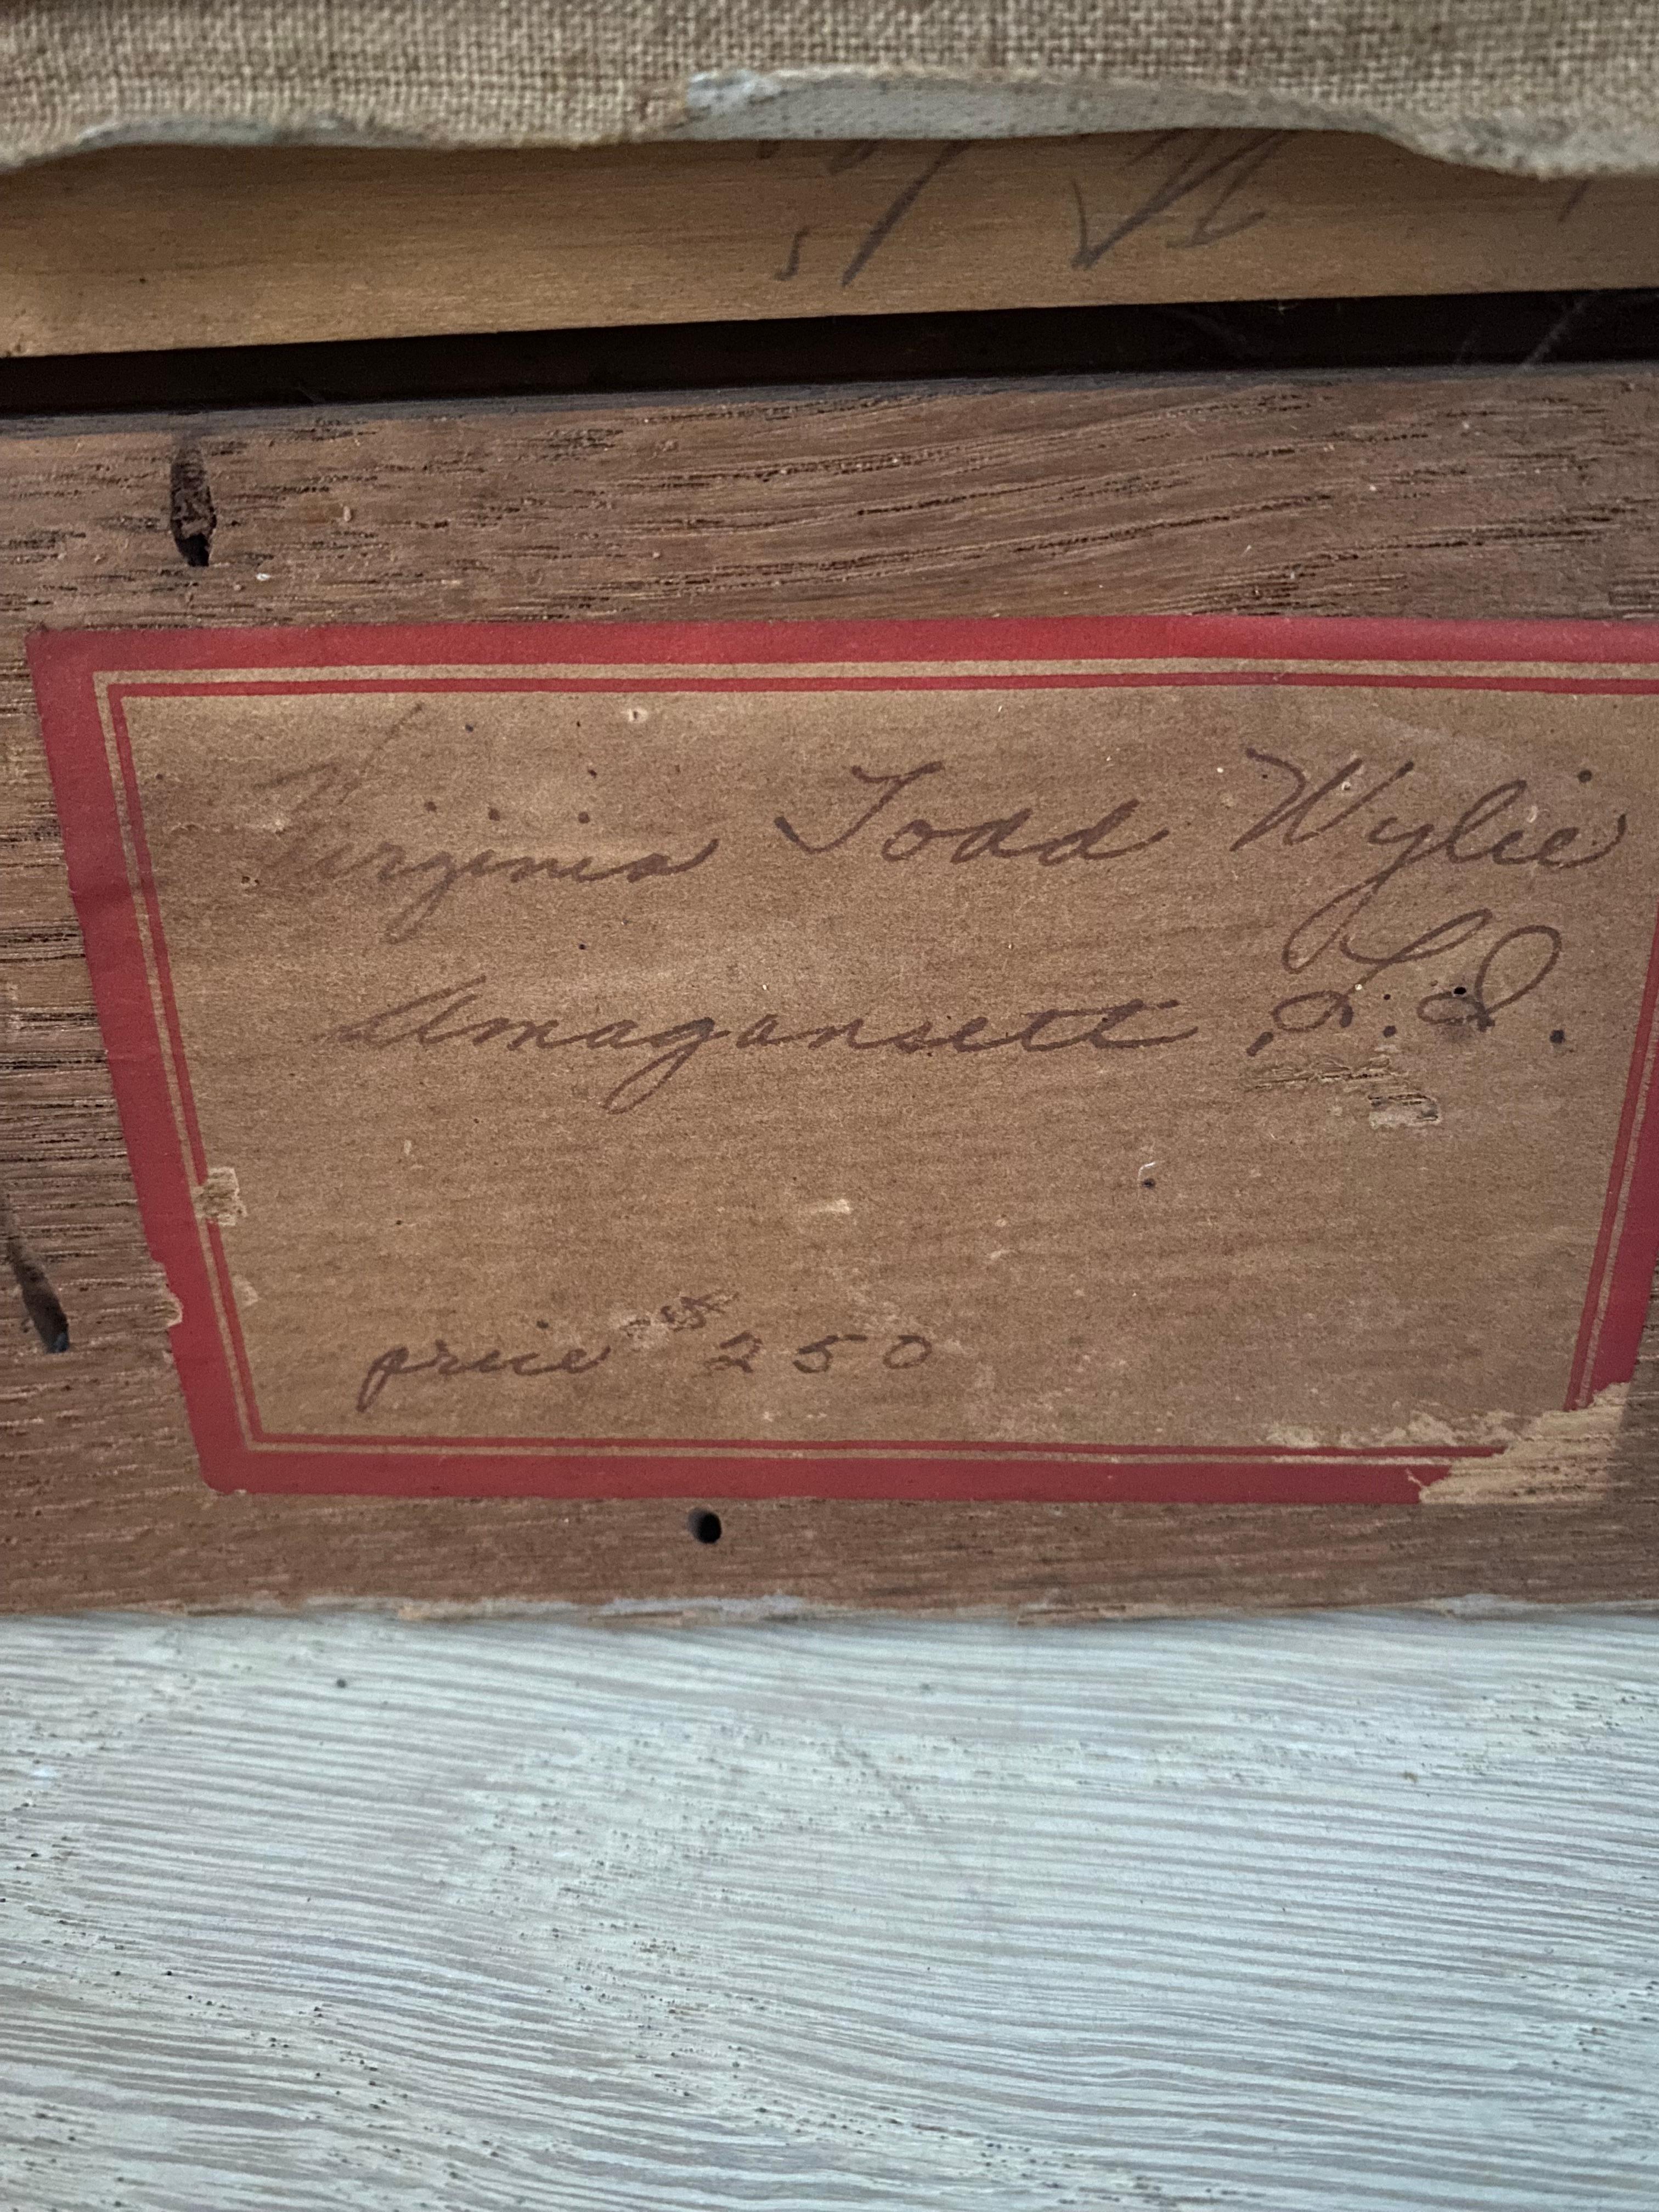 Virginia Todd Wylie
Amagansett, L.I.
price $250